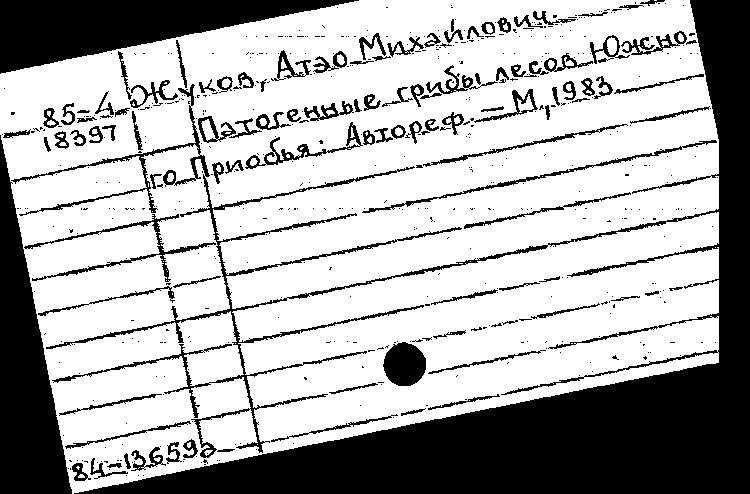 85-4 Жуков, Атэо Михайлович.
18397 Патогенные грибы лесов Южно-
го Приобья: Автореф. — М, 1983.
84-13659а